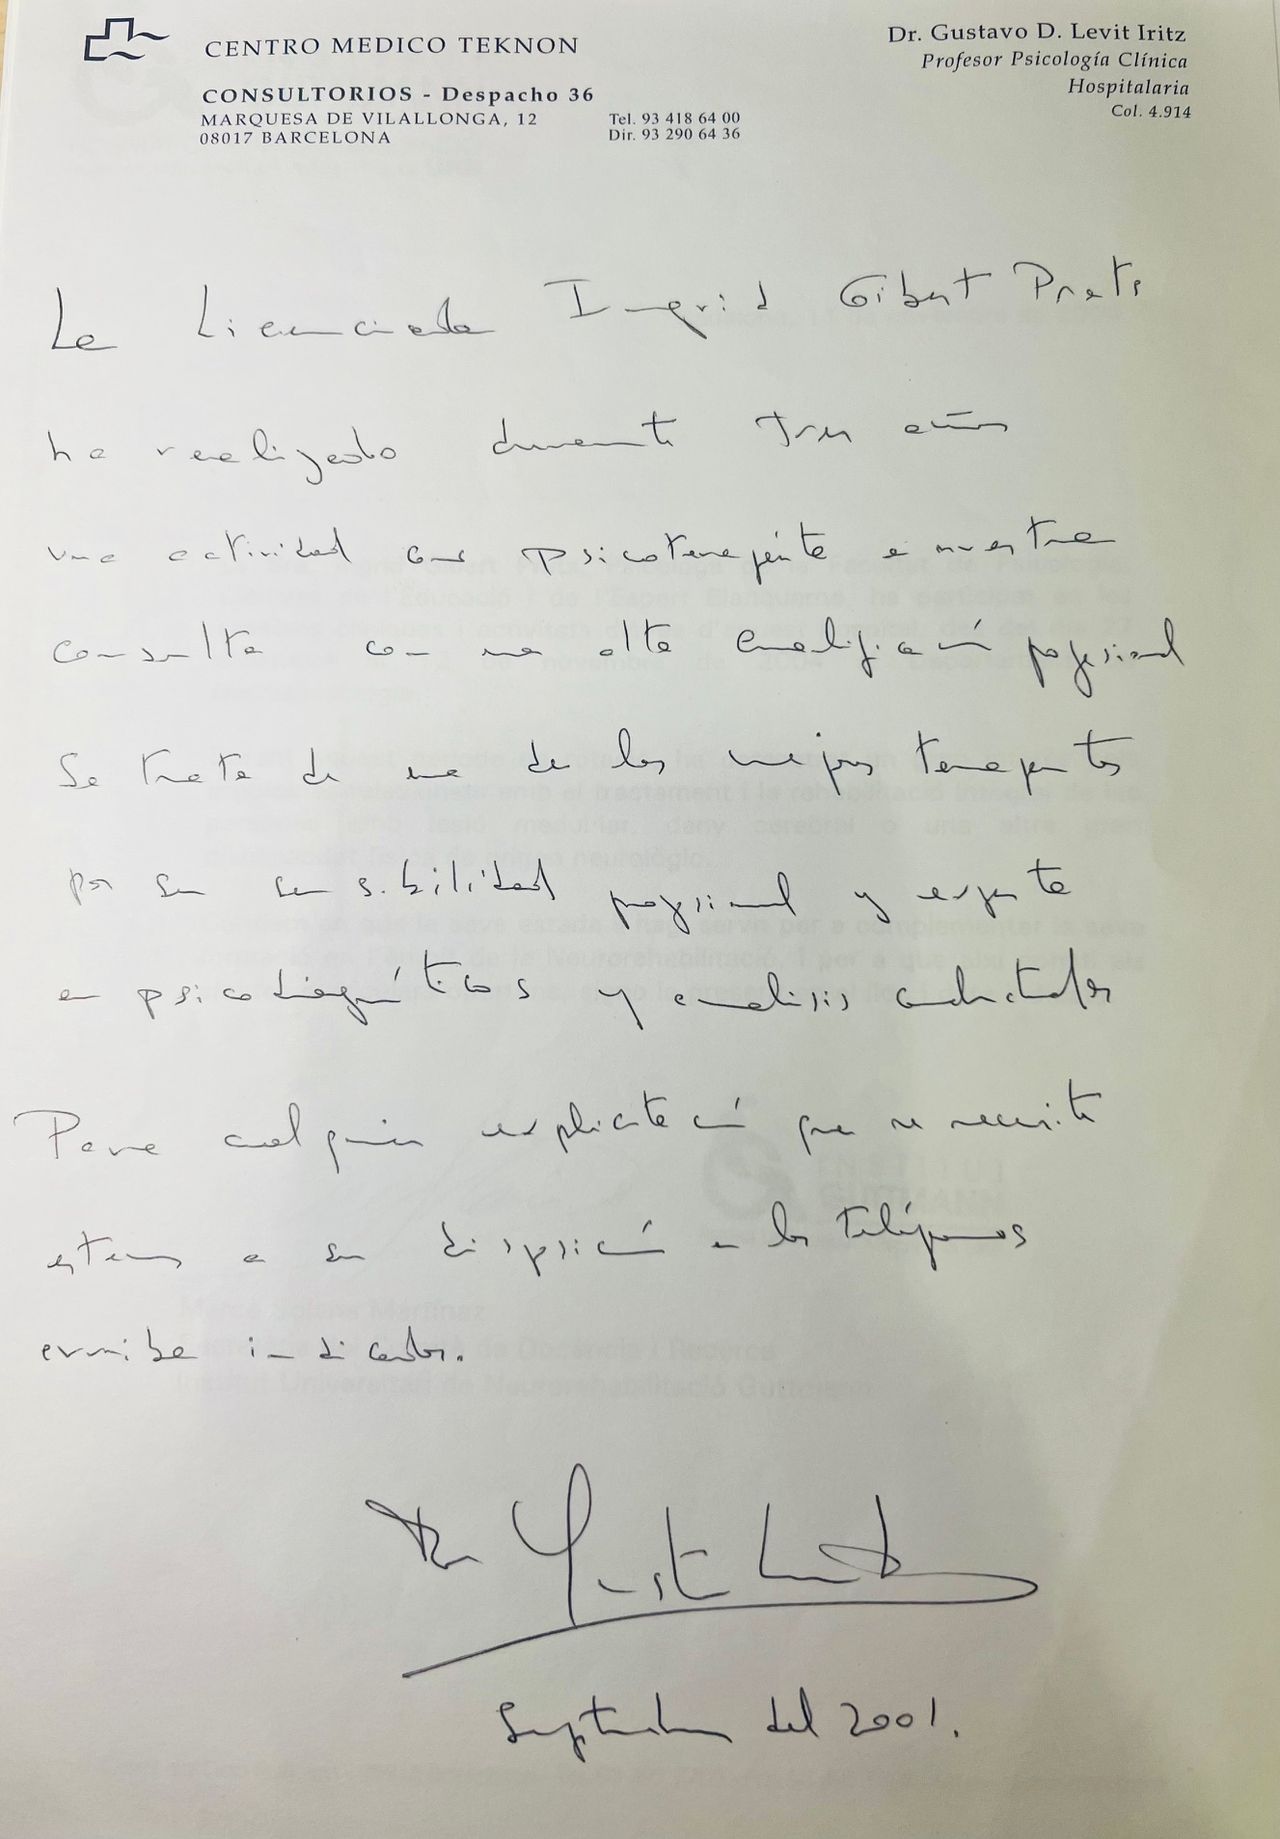 CENTRO MEDICO TEKNON
CONSULTORIOS - Despacho 36
MARQUESA DE VILALLONGA, 12
08017 BARCELONA
Tel. 93 418 64 00
Dir. 93 290 64 36
Dr. Gustavo D. Levit Iritz
Profesor Psicología Clínica
Hospitalaria
Col. 4.914
La Licenciada Ingrid Gibert Prats
ha realizado durante tres años
una actividad como psicoterapeuta en nuestra
consulta con una alta cualificación profesional
Se trata de una de las mejores terapeutas
por su sensibilidad profesional y experta
en psicodiagnósticos y analisis conductales
Para cualquier explicitación que se necesite
estamos a su disposición en los teléfonos
arriba indicados.
Dr Gustavo Levit
Septiembre del 2001.